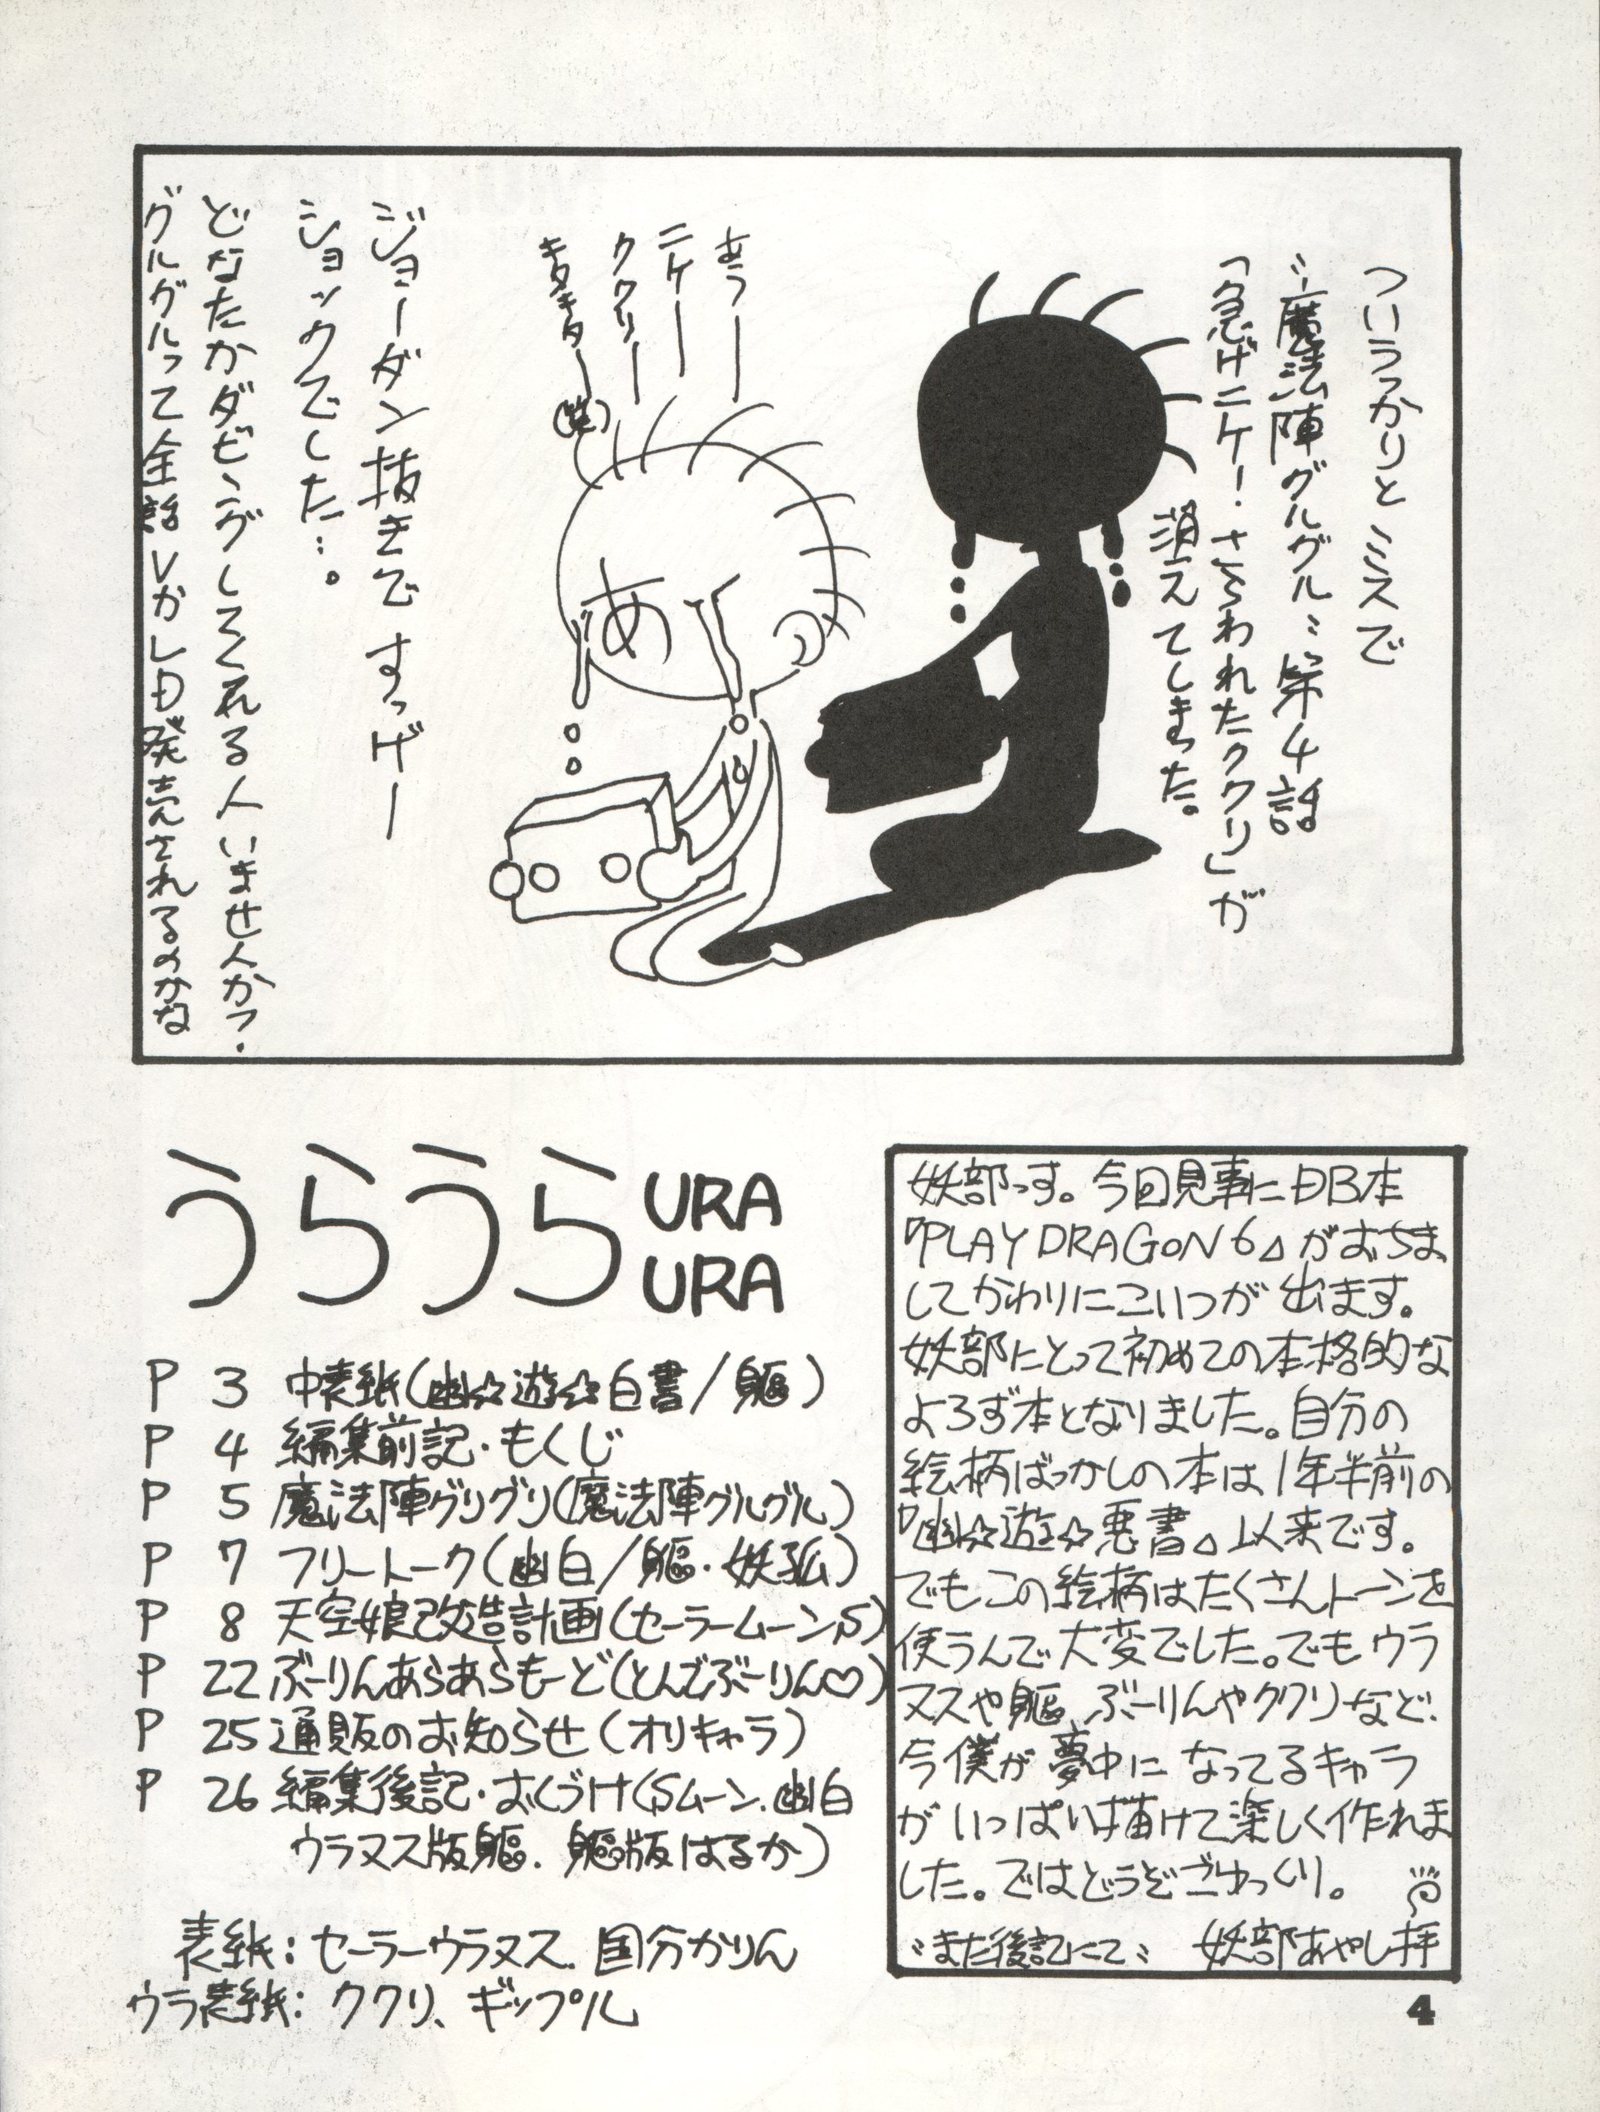 ついうっかりとミスで
〝魔法陣グルグル〟第4話
「急げニケ!さらわれたククリ」が
消えてしまった。
あうー
ニケー
ククリー
キタキター(笑)
あ
ジョーダン抜きですっげー
ショックでした…。
どなたかダビングしてくれる人いませんか?
グルグルって全話VかLD発売されるのかな
うらうら URA
URA
P 3 中表紙(幽☆遊☆白書/軀)
P 4 編集前記・もくじ
P 5 魔法陣グリグリ(魔法陣グルグル)
P 7 フリートーク(幽白/軀・妖狐)
P 8 天空娘改造計画(セーラームーンS)
P 22 ぶーりんあらあらもーど(とんでぶーりん♡)
P 25 通販のお知らせ(オリキャラ)
P 26 編集後記・おくづけ(Sムーン、幽白
ウラヌス版軀、軀版はるか)
表紙:セーラーウラヌス、国分かりん
ウラ表紙:ククリ、ギップル
妖部っす。今回見事にDB本
『PLAY DRAGON 6』がおちま
してかわりにこいつが出ます。
妖部にとって初めての本格的な
よろず本となりました。自分の
絵柄ばっかしの本は1年半前の
『幽☆遊☆悪書』以来です。
でもこの絵柄はたくさんトーンを
使うんで大変でした。でもウラ
ヌスや軀、ぶーりんやククリなど、
今僕が夢中になってるキャラ
がいっぱい描けて楽しく作れま
した。ではどうぞごゆっくり。
〝また後記にて〟 妖部あやし拝
4